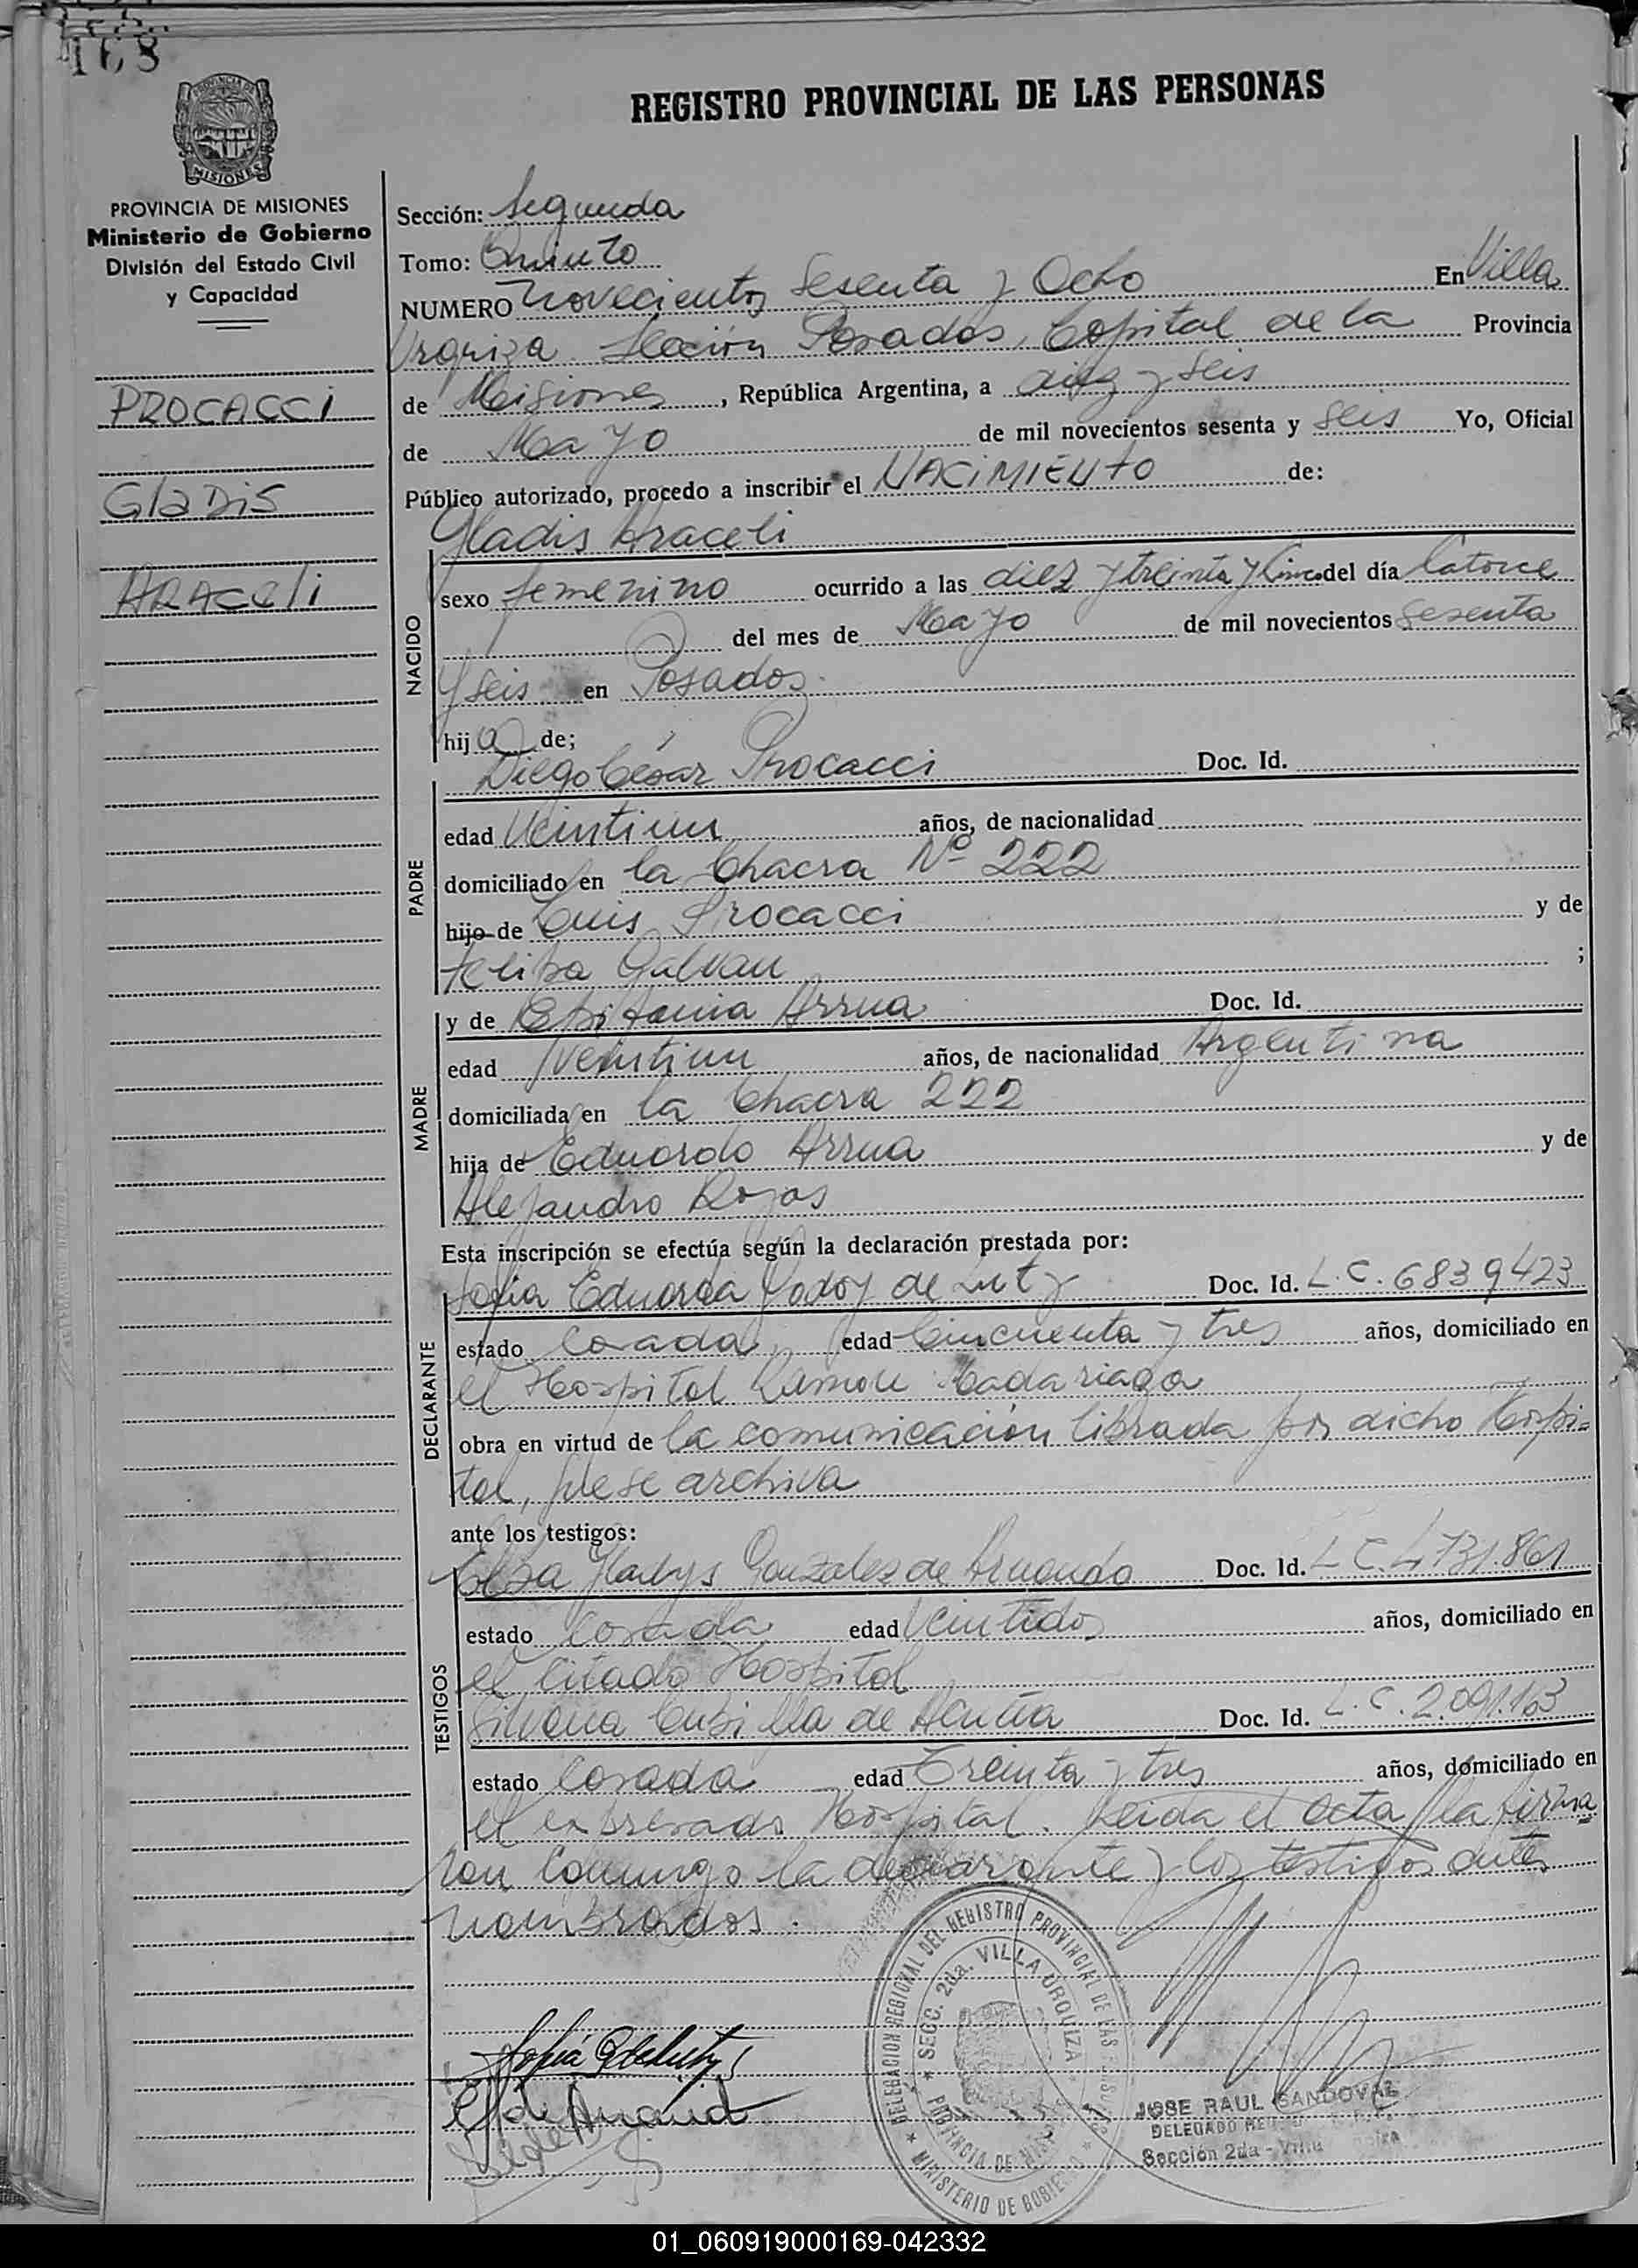 168
REGISTRO PROVINCIAL DE LAS PERSONAS
MISIONES
PROVINCIA DE MISIONES
Ministerio de Gobierno
División del Estado Civil
y Capacidad
PROCACCi
GlaDiS
ARACeli
Sección: Segunda
Tomo: Quinto
NUMERO Novecientos Sesenta y Ocho En Villa
Urquiza Sección Posadas, Capital de la Provincia
de Misiones, República Argentina, a diez y seis
de Mayo de mil novecientos sesenta y seis Yo, Oficial
Público autorizado, procedo a inscribir el NACIMIENTO de:
Gladis Araceli
NACIDO
sexo femenino ocurrido a las diez y treinta y Cinco del día Catorce
del mes de Mayo de mil novecientos Sesenta
y seis en Posadas.
hija de;
Diego César Procacci Doc. Id.
PADRE
edad Veintiun años, de nacionalidad
domiciliado en la Chacra Nº 222
hijo de Luis Procacci y de
Felisa Galvan ;
y de Epifania Arrua Doc. Id.
MADRE
edad Veintiun años, de nacionalidad Argentina
domiciliada en la Chacra 222
hija de Eduardo Arrua y de
Alejandra Rojas
Esta inscripción se efectúa según la declaración prestada por:
Sofia Eduarda Godoy de Lutz Doc. Id. L.C. 6839423
DECLARANTE
estado Casada edad Cincuenta y tres años, domiciliado en
el Hospital Ramon Madariaga
obra en virtud de la comunicación librada por dicho Hospi=
tal, que se archiva
ante los testigos:
Elsa Gladys Gonzalez de Doc. Id. L C. 4731.861
TESTIGOS
estado Casada edad Veintidos años, domiciliado en
el citado Hospital
Silvana Cubilla de Acuña Doc. Id. L.C. 2.091.163
estado Casada edad Treinta y tres años, domiciliado en
el expresado Hospital. Leida el acta, la firma
ron conmigo la declarante y los testigos antes
nombrados.
DELEGACION REGIONAL DEL REGISTRO PROVINCIAL DE LAS PERSONAS
SECC. 2da. VILLA URQUIZA
PROVINCIA DE MISIONES
MINISTERIO DE GOBIERNO
JOSE RAUL SANDOVAL
DELEGADO
Sección 2da - Villa
01_060919000169-042332